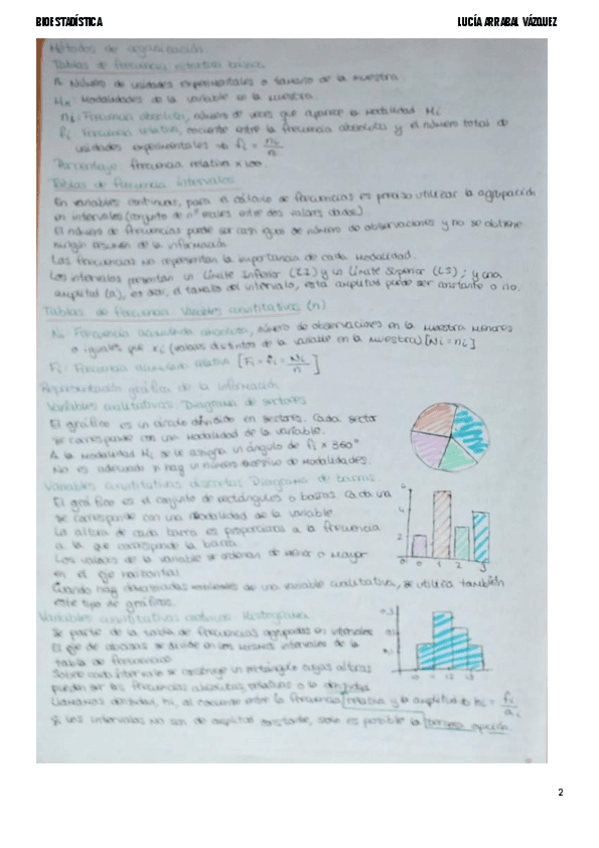 BIOESTADÍSTICA
LUCÍA ARRABAL VÁZQUEZ
Métodos de organización
Tablas de frecuencia estadística básica
n: Número de unidades experimentales o tamaño de la muestra.
Mn: Modalidades de la variable en la muestra.
ni: Frecuencia absoluta, número de veces que aparece la modalidad Mi
fi: Frecuencia relativa, cociente entre la frecuencia absoluta y el número total de
unidades experimentales → fi = ni/n
Porcentaje: frecuencia relativa x 100.
Tablas de frecuencia. Intervalos
En variables continuas, para el cálculo de frecuencias es preciso utilizar la agrupación
en intervalos (conjunto de nº reales entre dos valores dados).
El número de frecuencias puede ser casi igual de número de observaciones y no se obtiene
ningún resumen de la información.
Las frecuencias no representan la importancia de cada modalidad.
Los intervalos presentan un Límite Inferior (LI) y un Límite Superior (LS); y una
amplitud (a), es decir, el tamaño del intervalo, esta amplitud puede ser constante o no.
Tablas de frecuencia. Variables cuantitativas (n)
Ni: Frecuencia acumulada absoluta, número de observaciones en la muestra menores
o iguales que xi (valores distintos de la variable en la muestra) [Ni = ni]
Fi: Frecuencia acumulada relativa [Fi = = Ni/n]
Representación gráfica de la información
Variables cualitativas: Diagrama de sectores
El gráfico es un círculo dividido en sectores. Cada sector
se corresponde con una modalidad de la variable.
A la modalidad Mi se le asigna un ángulo de fi x 360°
No es adecuado si hay un número excesivo de modalidades.
Variables cuantitativas discretas: Diagrama de barras.
El gráfico es el conjunto de rectángulos o barras. Cada una
se corresponde con una modalidad de la variable
La altura de cada barra es proporcional a la frecuencia
a la que corresponde la barra.
Los valores de la variable se ordenan de menor a mayor
en el eje horizontal
Cuando hay demasiadas modalidades de una variable cualitativa, se utiliza también
este tipo de gráficos.
Variables cuantitativas continuas: Histograma
Se parte de la tabla de frecuencias agrupadas en intervalos
El eje de abcisas se divide en los mismos intervalos de la
tabla de frecuencias
Sobre cada intervalo se construye un rectángulo cuyas alturas
pueden ser las frecuencias absolutas, relativas o la densidad
Llamamos densidad, hi, al cociente entre la frecuencia relativa y la amplitud → hi = fi/ai
Si los intervalos no son de amplitud constante, solo es posible la tercera opción.
2